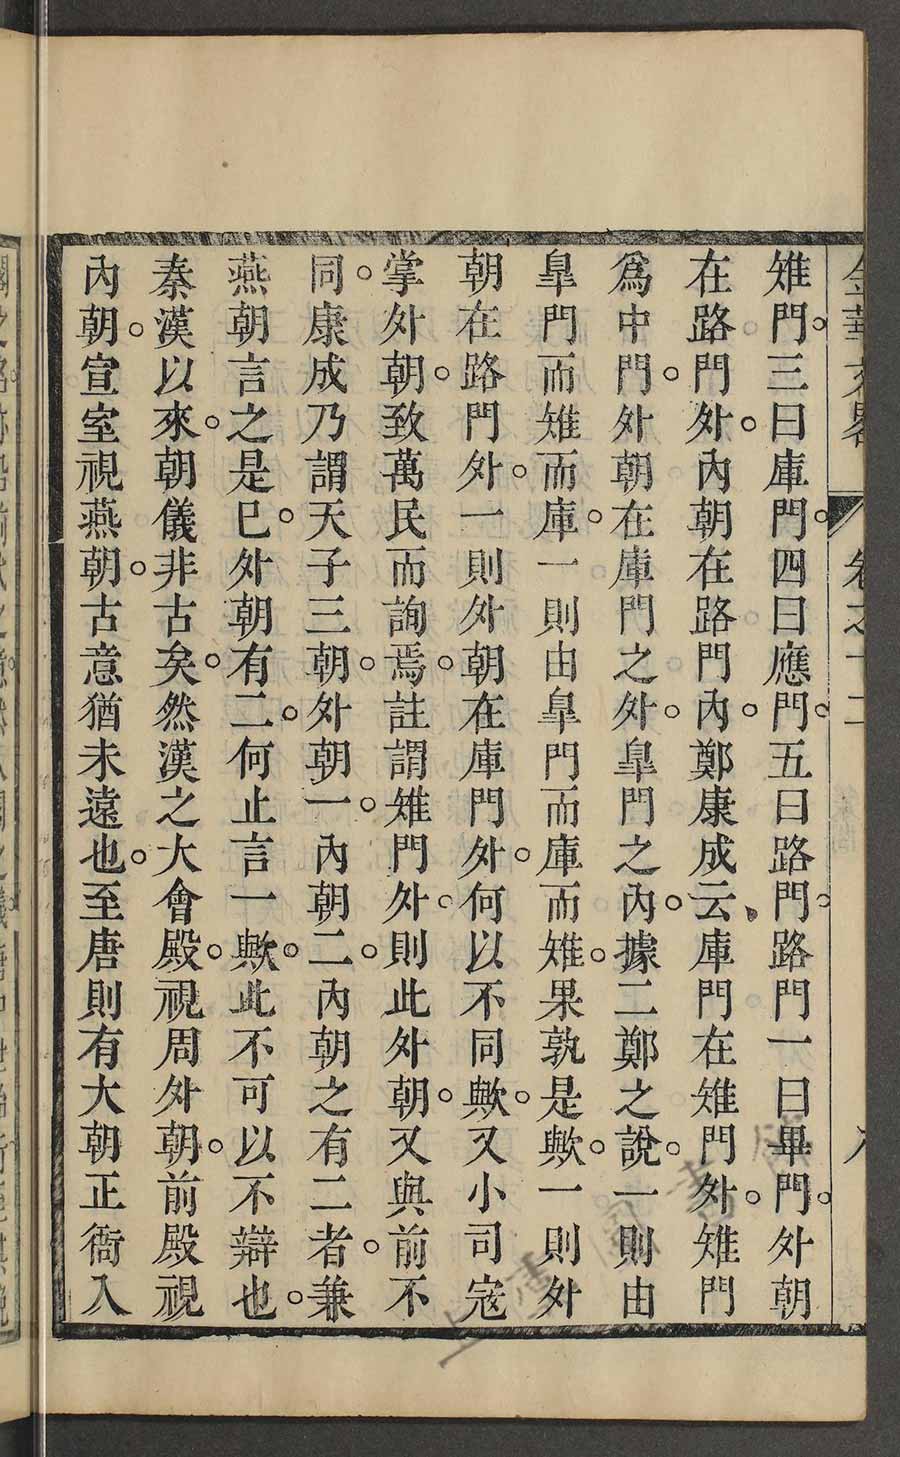 金華文畧 卷之十二
雉門。三曰庫門。四曰應門。五曰路門。路門一曰畢門。外朝
在路門外。內朝在路門內。鄭康成云。庫門在雉門外。雉門
爲中門。外朝在庫門之外。皐門之內。據二鄭之說。一則由
皐門而雉而庫。一則由皐門而庫而雉。果孰是歟。一則外
朝在路門外。一則外朝在庫門外。何以不同歟。又小司寇
掌外朝。致萬民而詢焉。註謂雉門外。則此外朝。又與前不
同。康成乃謂天子三朝。外朝一。內朝二。內朝之有二者。兼
燕朝言之是巳。外朝有二。何止言一歟。此不可以不辯也。
秦漢以來。朝儀非古矣。然漢之大會殿。視周外朝。前殿視
內朝。宣室視燕朝。古意猶未遠也。至唐則有大朝正衙入